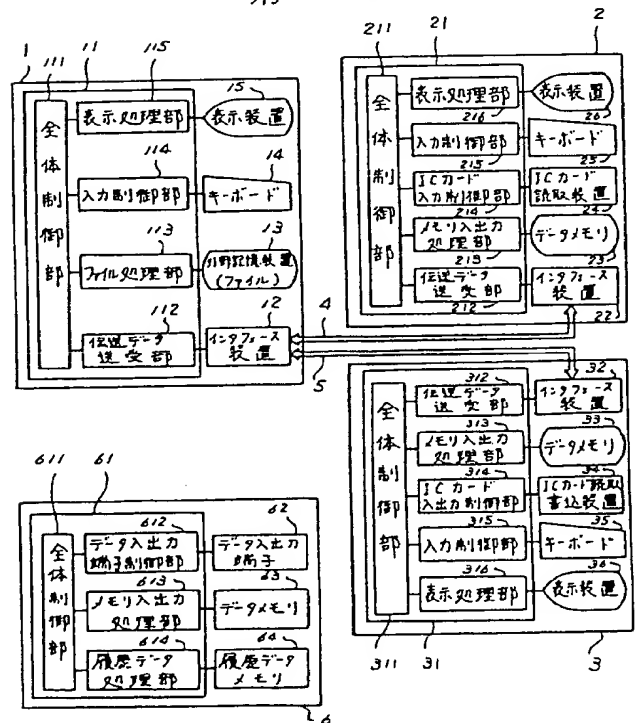 1
11
111
115
15
全体制御部
表示処理部
表示装置
114
14
入力制御部
キーボード
113
13
ファイル処理部
外部記憶装置
(ファイル)
112
12
伝送データ
送受部
インタフェース
装置
4
5
2
21
211
全体制御部
表示処理部
表示装置
216
26
入力制御部
キーボード
215
25
ICカード
入力制御部
ICカード
読取装置
214
24
メモリ入出力
処理部
データメモリ
213
23
伝送データ
送受部
インタフェース
装置
212
22
312
32
全体制御部
伝送データ
送受部
インタフェース
装置
313
33
メモリ入出力
処理部
データメモリ
314
34
ICカード
入出力制御部
ICカード読取
書込装置
315
35
入力制御部
キーボード
316
36
表示処理部
表示装置
311
31
3
611
61
612
62
全体制御部
データ入出力
端子制御部
データ入出力
端子
613
63
メモリ入出力
処理部
データメモリ
614
64
履歴データ
処理部
履歴データ
メモリ
6